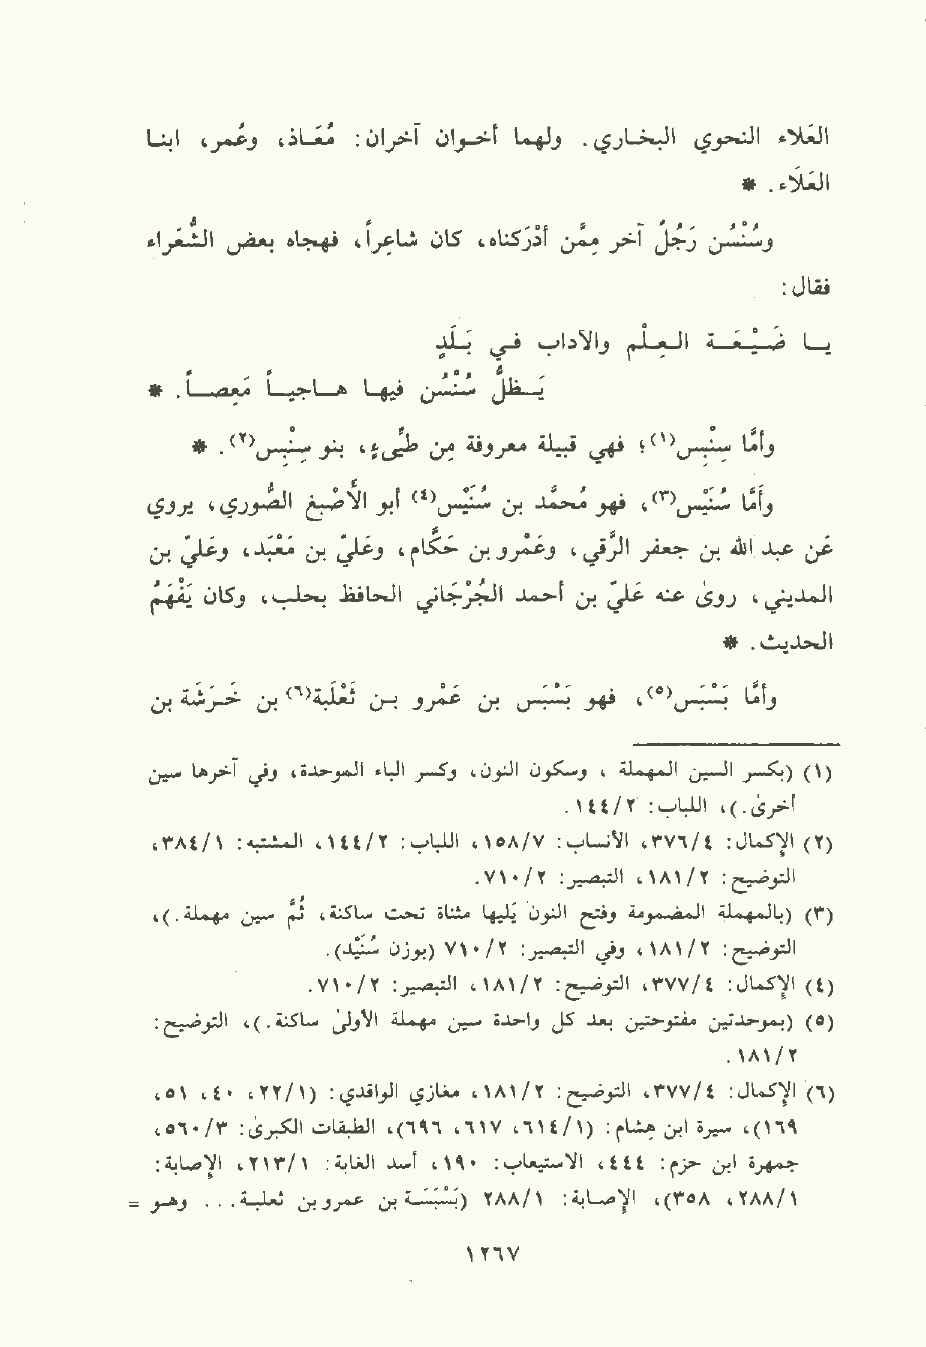 العَلاء النحوي البخاري. ولهما أخوان آخران: مُعَاذ، وعُمر، ابنا
العَلَاء. *
وسُنْسُن رَجُلٌ آخر مِمَّن أدْرَكناه، كان شاعِراً، فهجاه بعض الشُّعَراء
فقال:
يا ضَيْعَة العِلْم والآداب في بَلَدٍ
يَظلُّ سُنْسُن فيها هاجياً مَعِصاً. *
وأمَّا سِنْبِس(١)؛ فهي قبيلة معروفة مِن طَيِّىءٍ، بنو سِنْبِس(٢). *
وأمَّا سُنَيْس(٣)، فهو مُحمَّد بن سُنَيْس(٤) أبو الأصْبغ الصُّوري، يروي
عَن عبد الله بن جعفر الرَّقي، وعَمْرو بن حَكَّام، وعَليّ بن مَعْبَد، وعَليّ بن
المديني، روىٰ عنه عَليّ بن أحمد الجُرْجَاني الحافظ بحلب، وكان يَفْهَمُ
الحديث. *
وأمَّا بَسْبَس(٥)، فهو بَسْبَس بن عَمْرو بن ثَعْلَبة(٦) بن خَرَشَة بن
(١) (بكسر السين المهملة ، وسكون النون، وكسر الباء الموحدة، وفي آخرها سين
أخرىٰ.)، اللباب: ١٤٤/٢.
(٢) الإكمال: ٣٧٦/٤، الأنساب: ١٥٨/٧، اللباب: ١٤٤/٢، المشتبه: ٣٨٤/١،
التوضيح: ١٨١/٢، التبصير: ٧١٠/٢.
(٣) (بالمهملة المضمومة وفتح النون يَليها مثناة تحت ساكنة، ثُمَّ سين مهملة.)،
التوضيح: ١٨١/٢، وفي التبصير: ٧١٠/٢ (بوزن سُنَيْد).
(٤) الإكمال: ٣٧٧/٤، التوضيح: ١٨١/٢، التبصير: ٧١٠/٢.
(٥) (بموحدتين مفتوحتين بعد كل واحدة سين مهملة الأولىٰ ساكنة.)، التوضيح:
١٨١/٢.
(٦) الإكمال: ٣٧٧/٤، التوضيح: ١٨١/٢، مغازي الواقدي: (٢٢/١، ٤٠، ٥١،
١٦٩)، سيرة ابن هشام: (٦١٤/١، ٦١٧، ٦٩٦)، الطبقات الكبرىٰ: ٥٦٠/٣،
جمهرة ابن حزم: ٤٤٤، الاستيعاب: ١٩٠، أسد الغابة: ٢١٣/١، الإصابة:
٢٨٨/١، ٣٥٨)، الإصابة: ٢٨٨/١ (بَسْبَسَة بن عمرو بن ثعلبة... وهو =
١٢٦٧